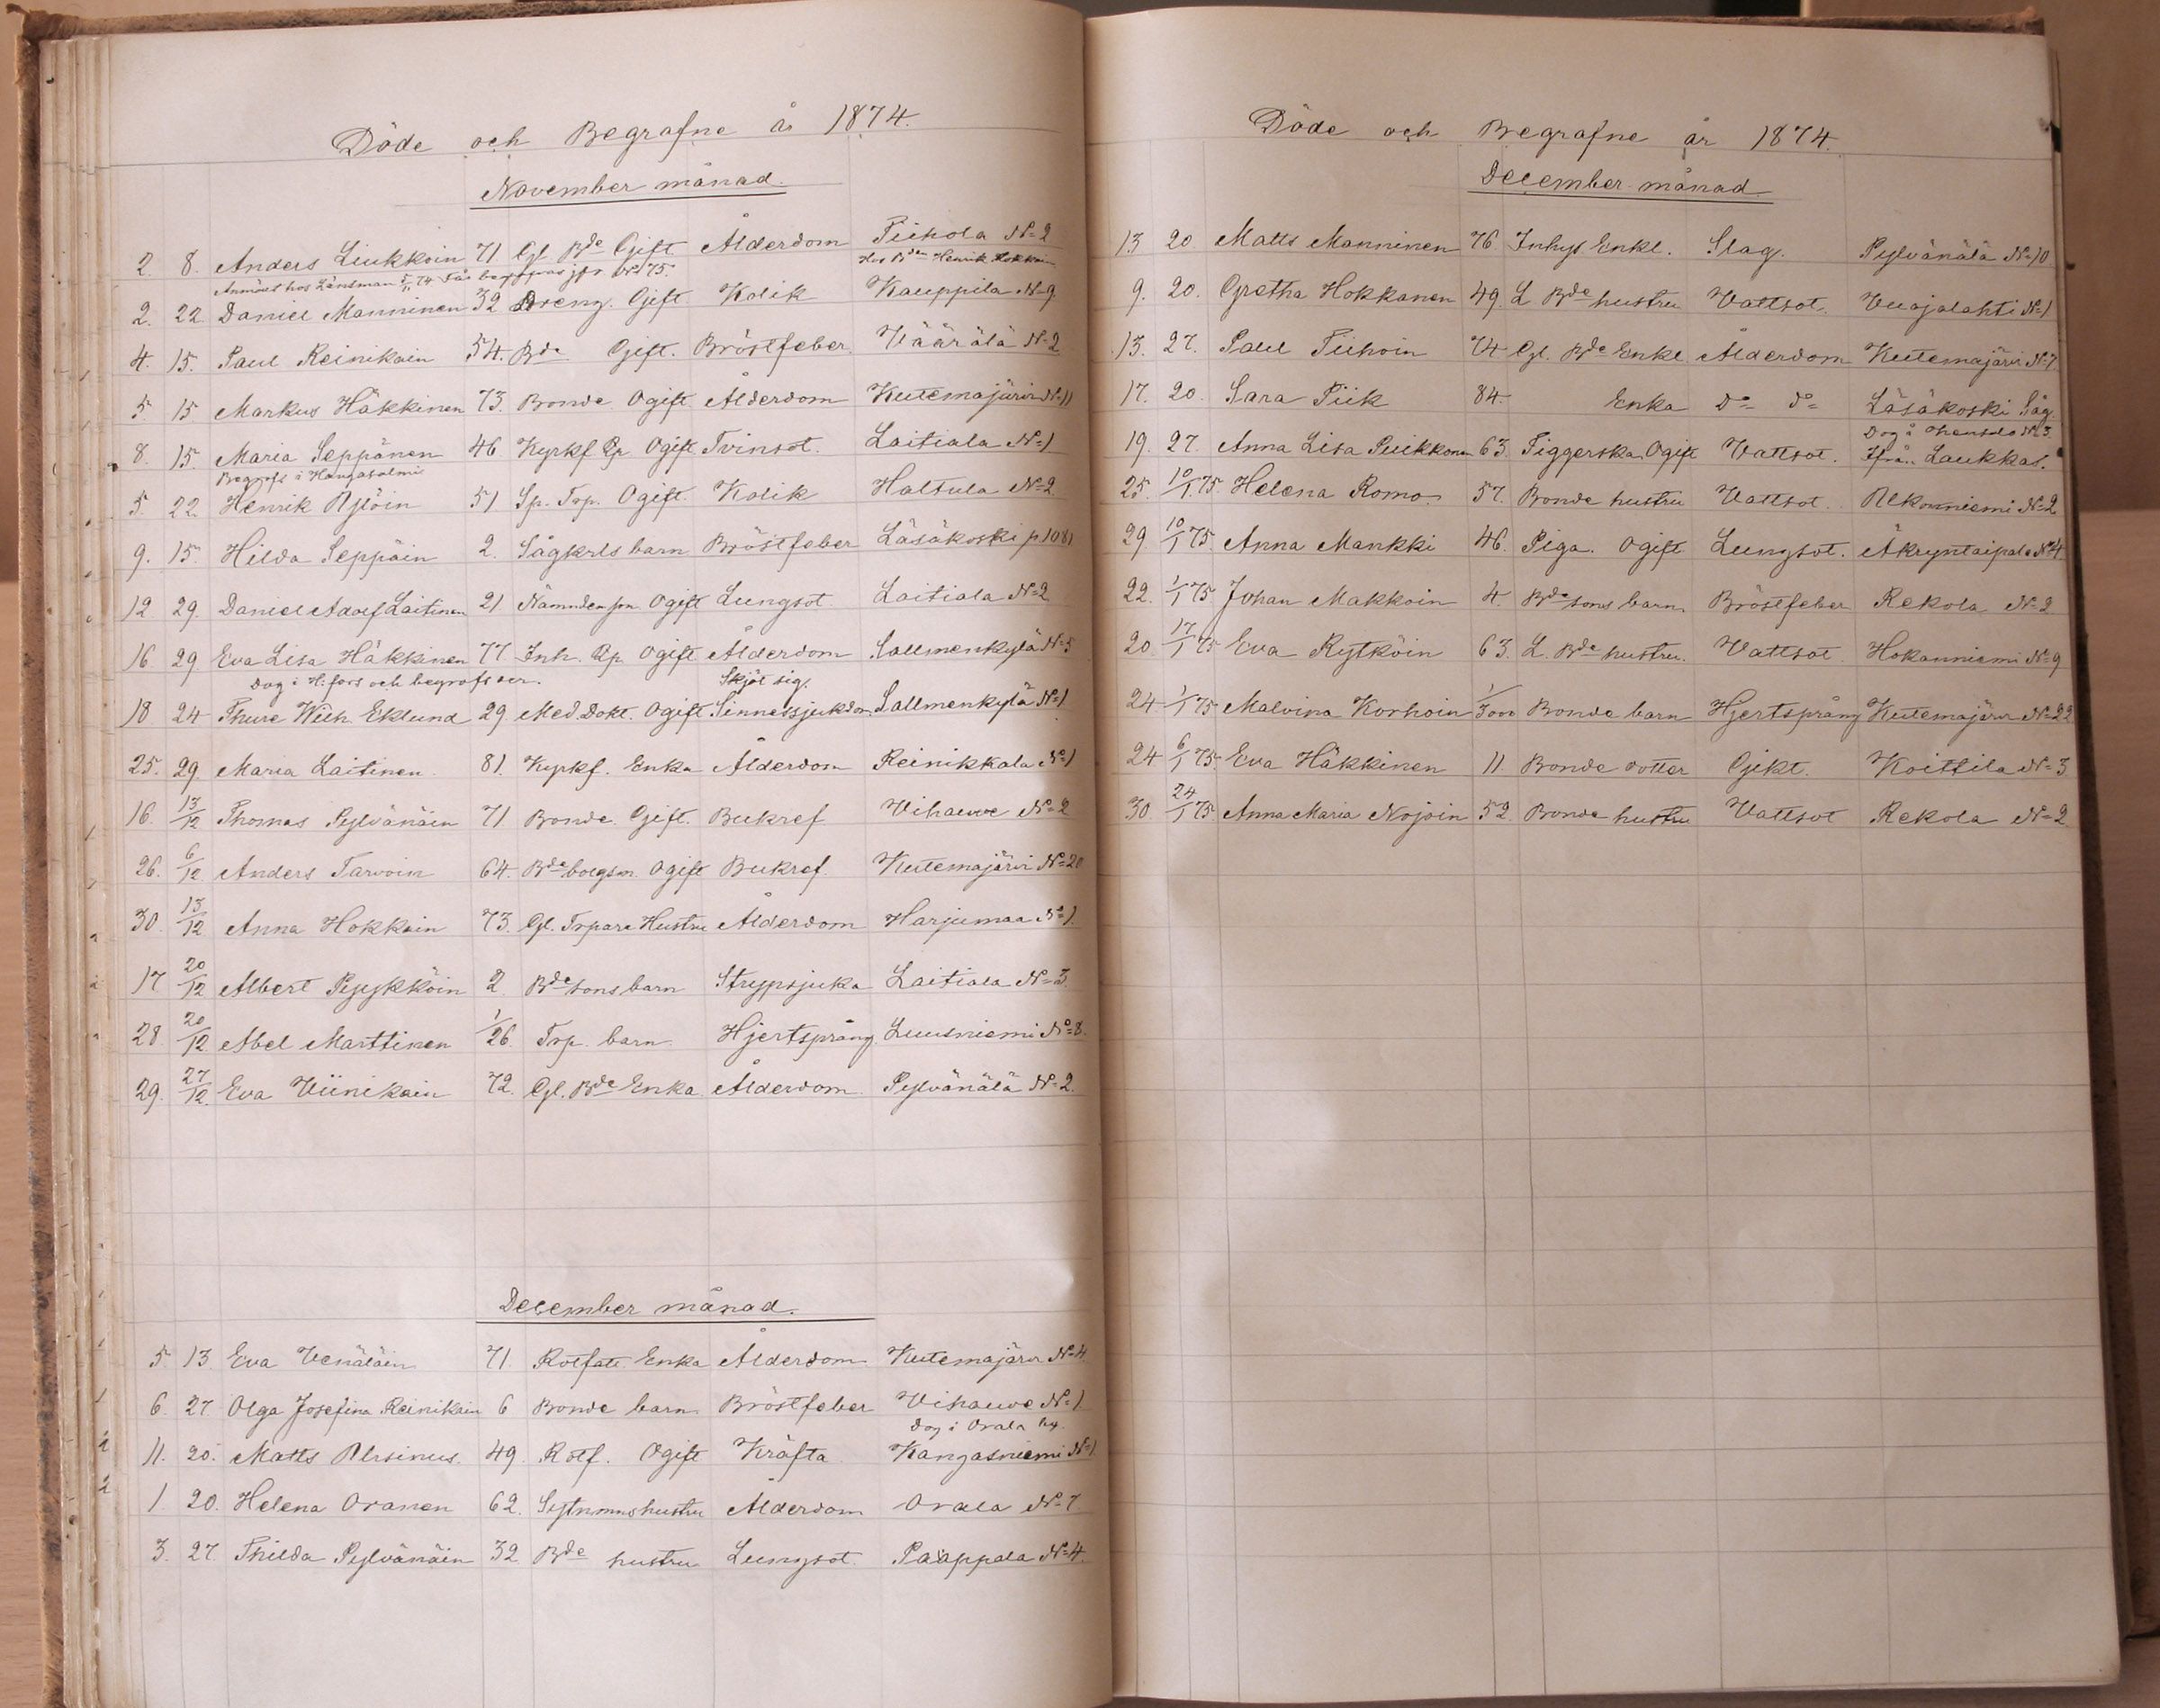 Döde och Begrafne år 1874.
November månad.
2. 8. Anders Liukkoin 71 Gl. Bde Gift. Ålderdom Tiihola No 2
Anmält hos Länsman 5/11 74 Får begrafvas
Hos Bden Henrik Hokkain
2. 22. Daniel Manninen 32 Dreng. Gift Kolik Kauppila No 9
4. 15. Paul Reinikain 54. Bde Gift. Bröstfeber. Väärälä No 2
5. 15 Markus Häkkinen 73. Bonde Ogift Ålderdom Kutemajärvi No 11
8. 15. Maria Seppänen 46 Kyrkf. Qp Ogift Tvinsot. Laitiala No 1
Begrofs i Hangasalmi
5. 22 Henrik Ylöin 51 Sp. Trp. Ogift. Kolik Haltula No 2
9. 15. Hilda Seppäin 2. Sågkrls barn Bröstfeber Läsäkoski p 1081
12 29. Daniel Adolf Laitinen 21 Nämndem son. Ogift Lungsot Laitiala No 2
16 29 Eva Lisa Häkkinen 77 Inh. Qp Ogift Ålderdom Sallmenkylä No 5
Dog i H:fors och begrofs der. Skjöt sig.
18 24 Thure Wilh. Eklund 29. Med. Dokt. Ogift Sinnessjukdom Sallmenkylä No 1
25. 29. Maria Laitinen. 81. Kyrkf. Enka Ålderdom Reinikkala No 1
16. 13/12 Thomas Pylvänäin 71 Bonde Gift. Bukref Vihauve No 2
26. 6/12 Anders Tarvoin 64. Bde bolgsm. Ogift Bukref. Kutemajärvi No 20
30. 13/12 Anna Hokkain 73. Gl. Trpare Hustru Ålderdom Harjumaa No 1.
17 20/12 Albert Pyykköin 2. Bde sons barn Strypsjuka Laitiala No 3.
28. 20/12 Abel Marttinen 1/26. Trp. barn. Hjertsprång. Luusniemi No 8.
29. 27/12. Eva Viinikain 72. Gl. Bde Enka. Ålderdom. Pylvänälä No 2.
December månad.
5 13. Eva Venäläin 71. Rotfatt. Enka Ålderdom Kutemajärvi No 4
6. 27. Olga Josefina Reinikain 6 Bonde barn. Bröstfeber Vihauve No 1
Dog i Orala by.
11. 20. Matts Alsinus. 49. Rotf. Ogift Kräfta Kangasniemi No 1
1 20. Helena Oranen 62. Sytnmns hustru Ålderdom Orala No 7.
3. 27. Thilda Pylvänäin 32. Bde hustru Lungsot. Paappala No 4.
Döde och Begrafne år 1874.
December månad
13 20. Matts Manninen 76. Inhys Enkl. Slag. Pylvänälä No 10
9. 20. Gretha Hokkanen 49. L. Bde hustru Vattsot. Vuojalahti No 1
13. 27. Paul Tiihoin 74 Gl. Bde Enkl Ålderdom Kutemajärvi No 7.
17. 20. Sara Piik 84. Enka Do do Läsäkoski Såg.
Dog i
19. 27. Anna Lisa Puikkonen 63. Tiggerska Ogift Vattsot. Ifrån Laukkas.
25. 10/1 75. Helena Romo. 57. Bonde hustru Vattsot. Alkonniemi No 2
29. 10/1 75. Anna Mankki 46. Piga. Ogift Lungsot. Äkryntaipale No 4
22. 1/1 75. Johan Makkoin 4. Bde sons barn. Bröstfeber Rekola No 2
20. 17/1 75 Eva Rytköin 63. L. Bde hustru. Vattsot Hokanniemi No 9
24 1/1 75 Malvina Korhoin Bonde barn Hjertsprång Kutemajärvi No 22
24 6/1 75. Eva Häkkinen 11. Bonde dotter Gikt. Koittila No 3.
30. 24/1 75. Anna Maria Nojoin 52. Bonde hustru Vattsot Rekola No 2.